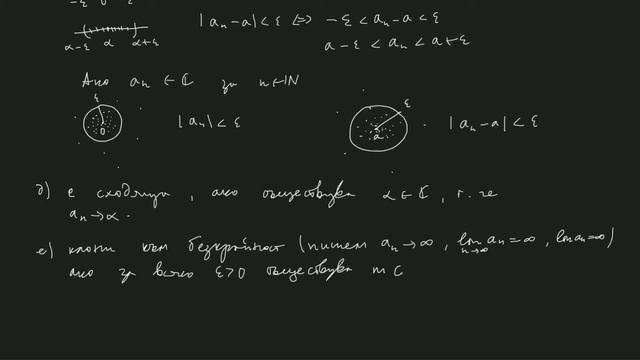 -ε 0 ε
α-ε α α+ε
|aₙ-a|<ε ⟺ -ε<aₙ-a<ε
a-ε<aₙ<a+ε
Ако aₙ ∈ ℂ за n∈ℕ
ε 0 |aₙ|<ε ε a |aₙ-a|<ε
д) е сходяща, ако съществува α∈ℂ, т.че
aₙ→α.
е) клони към безкрайност (пишем aₙ→∞, lim n→∞ aₙ=∞, lim aₙ=∞)
ако за всяко ε>0 съществува m с